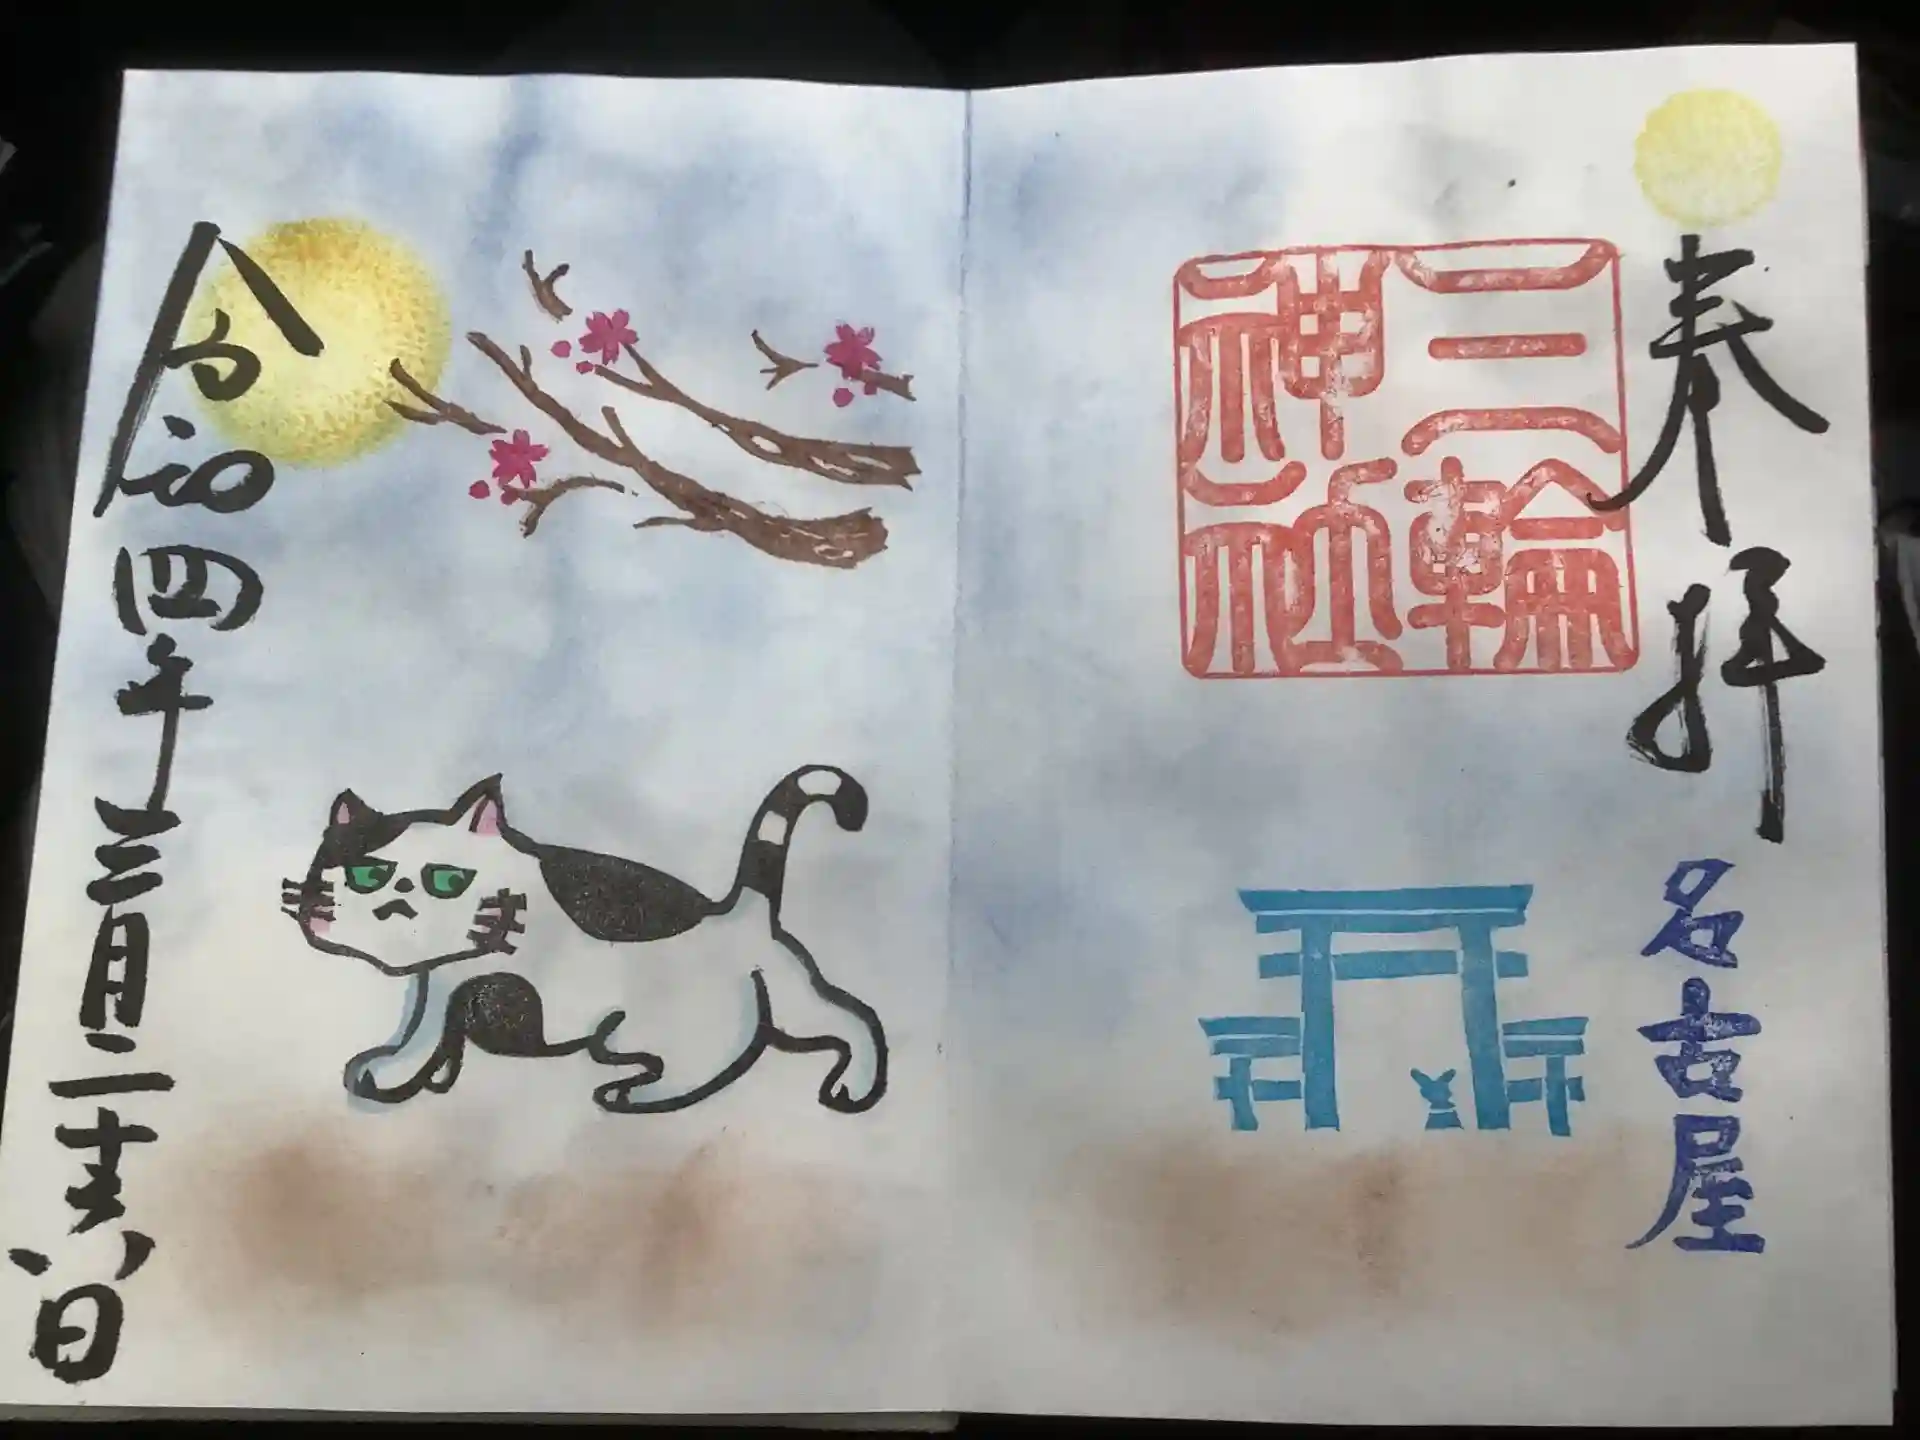 奉拝
名古屋
三輪
神社
令和四年三月二十六日